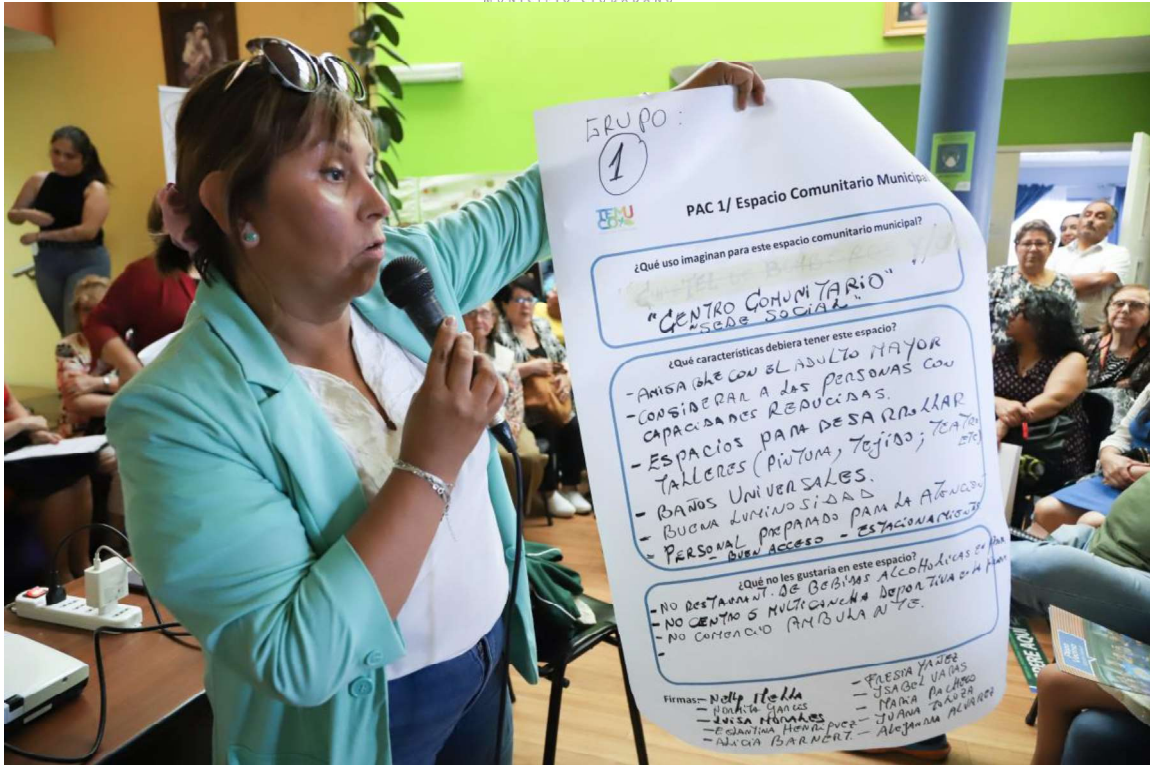 MUNICIPIO CIUDADANO
GRUPO:
1
TEMU
CO
PAC 1/ Espacio Comunitario Municipal
¿Qué uso imaginan para este espacio comunitario municipal?
"CENTRO COMUNITARIO"
"SEDE SOCIAL"
¿Qué características debiera tener este espacio?
- AMIGABLE CON EL ADULTO MAYOR
- CONSIDERAR A LAS PERSONAS CON
CAPACIDADES REDUCIDAS.
- ESPACIOS PARA DESARROLLAR
TALLERES (PINTURA, TEJIDO; TEATRO
ETC)
- BAÑOS UNIVERSALES.
- BUENA LUMINOSIDAD
- PERSONAL PREPARADO PARA LA ATENCION
- BUEN ACCESO - ESTACIONAMIENTO
¿Qué no les gustaria en este espacio?
- NO RESTAURANT. DE BEBIDAS ALCOHOLICAS
- NO CENTRO O MULTICANCHA DEPORTIVA
- NO COMERCIO AMBULANTE.
-
Firmas:- Nelly
- LUISA MORALES
- EGLANTINA HENRIQUEZ
- ALICIA BARNERT
- FRESIA YAÑEZ
- YSABEL VARAS
- MARIA PACHECO
- JUANA
- Alejandra ALVAREZ